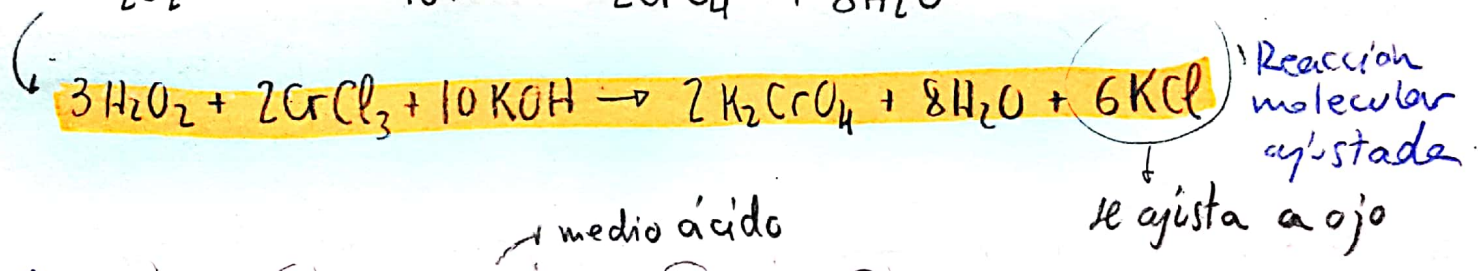 3H₂O₂ + 2CrCl₃ + 10KOH → 2K₂CrO₄ + 8H₂O + 6KCl
Reacción
molecular
ajustada.
se ajista a ojo
medio ácido